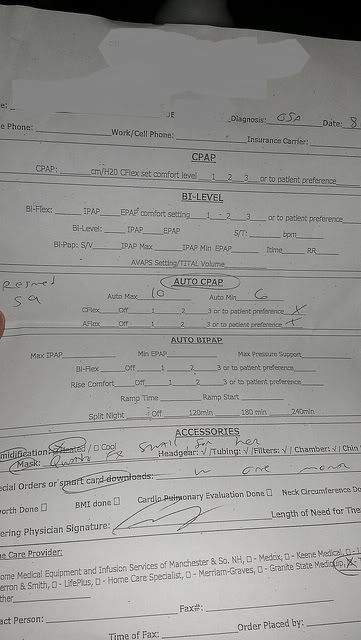 e:
Diagnosis: OSA Date: 8
e Phone: Work/Cell Phone: Insurance Carrier:
CPAP
CPAP: cm/H20 CFlex set comfort level 1 2 3 or to patient preference
BI-LEVEL
Bi-Flex: IPAP EPAP comfort setting 1 2 3 or to patient preference
Bi-Level: IPAP EPAP S/T: bpm
Bi-Pap: S/V IPAP Max IPAP Min EPAP Itime RR
AVAPS Setting/TITAL Volume
AUTO CPAP
Auto Max 10 Auto Min 6
CFlex Off 1 2 3 or to patient preference X
AFlex Off 1 2 3 or to patient preference X
AUTO BIPAP
Max IPAP Min EPAP Max Pressure Support
Bi-Flex Off 1 2 3 or to patient preference
Rise Comfort Off 1 2 3 or to patient preference
Ramp Time Ramp Start
Split Night Off 120min 180 min 240min
ACCESSORIES
midification: Heated / □ Cool
Mask: Quattro FX small, for her Headgear: √ /Tubing: √ /Filters: √ / Chamber: √ / Chin
ecial Orders or smart card downloads: in one month
worth Done □ BMI done □ Cardio Pulmonary Evaluation Done □ Neck Circumference Do
ering Physician Signature: Length of Need for The
e Care Provider:
ome Medical Equipment and Infusion Services of Manchester & So. NH, □ - Medox, □ - Keene Medical, □ - L
erron & Smith, □ - LifePlus, □ - Home Care Specialist, □ - Merriam-Graves, □ - Granite State Mediquip, X
ther
act Person: Fax#:
Time of Fax: Order Placed by: